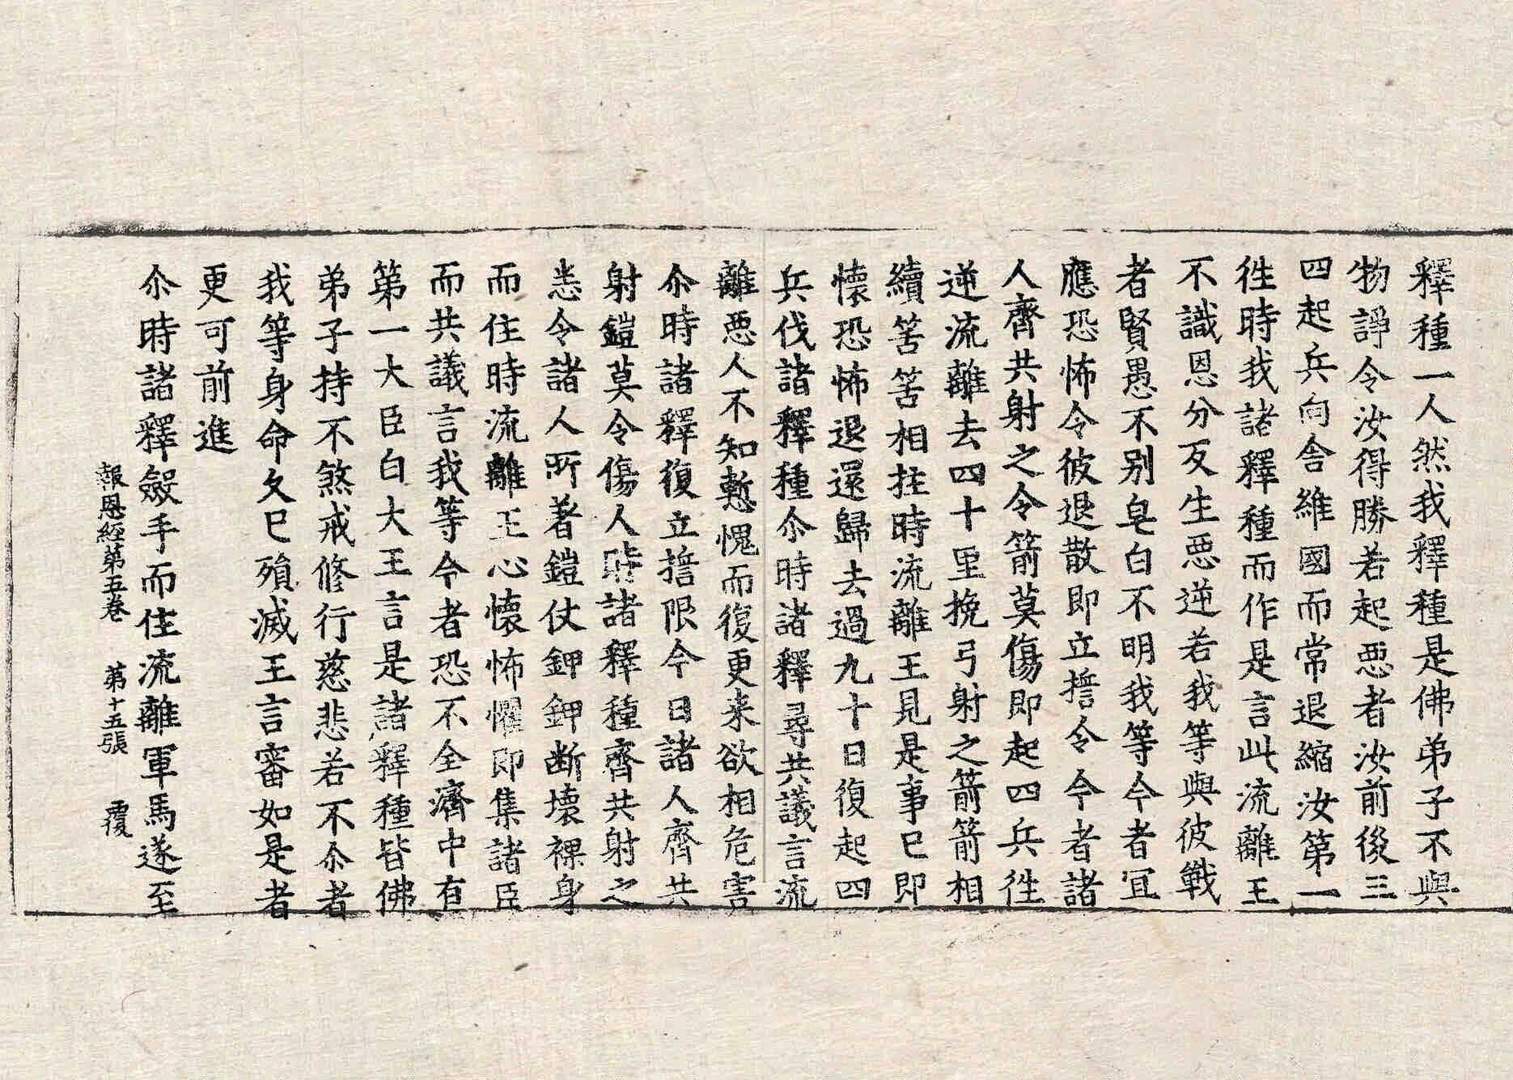 釋種一人然我釋種是佛弟子不與
物諍令汝得勝若起惡者汝前後三
四起兵向舍維國而常退縮汝第一
徃時我諸釋種而作是言此流離王
不識恩分反生惡逆若我等與彼戰
者賢愚不別皂白不明我等今者冝
應恐怖令彼退散即立誓令今者諸
人齊共射之令箭莫傷即起四兵徃
逆流離去四十里挽弓射之箭箭相
續筈筈相拄時流離王見是事已即
懷恐怖退還歸去過九十日復起四
兵伐諸釋種尒時諸釋尋共議言流
離惡人不知慙愧而復更来欲相危害
尒時諸釋復立誓限今日諸人齊共
射鎧莫令傷人時諸釋種齊共射之
悉令諸人所著鎧仗鉀鉀断壞裸身
而住時流離王心懷怖懼即集諸臣
而共議言我等今者恐不全濟中有
第一大臣白大王言是諸釋種皆佛
弟子持不煞戒修行慈悲若不尒者
我等身命久已殞滅王言審如是者
更可前進
尒時諸釋斂手而住流離軍馬遂至
報恩經第五卷 第十五張 覆